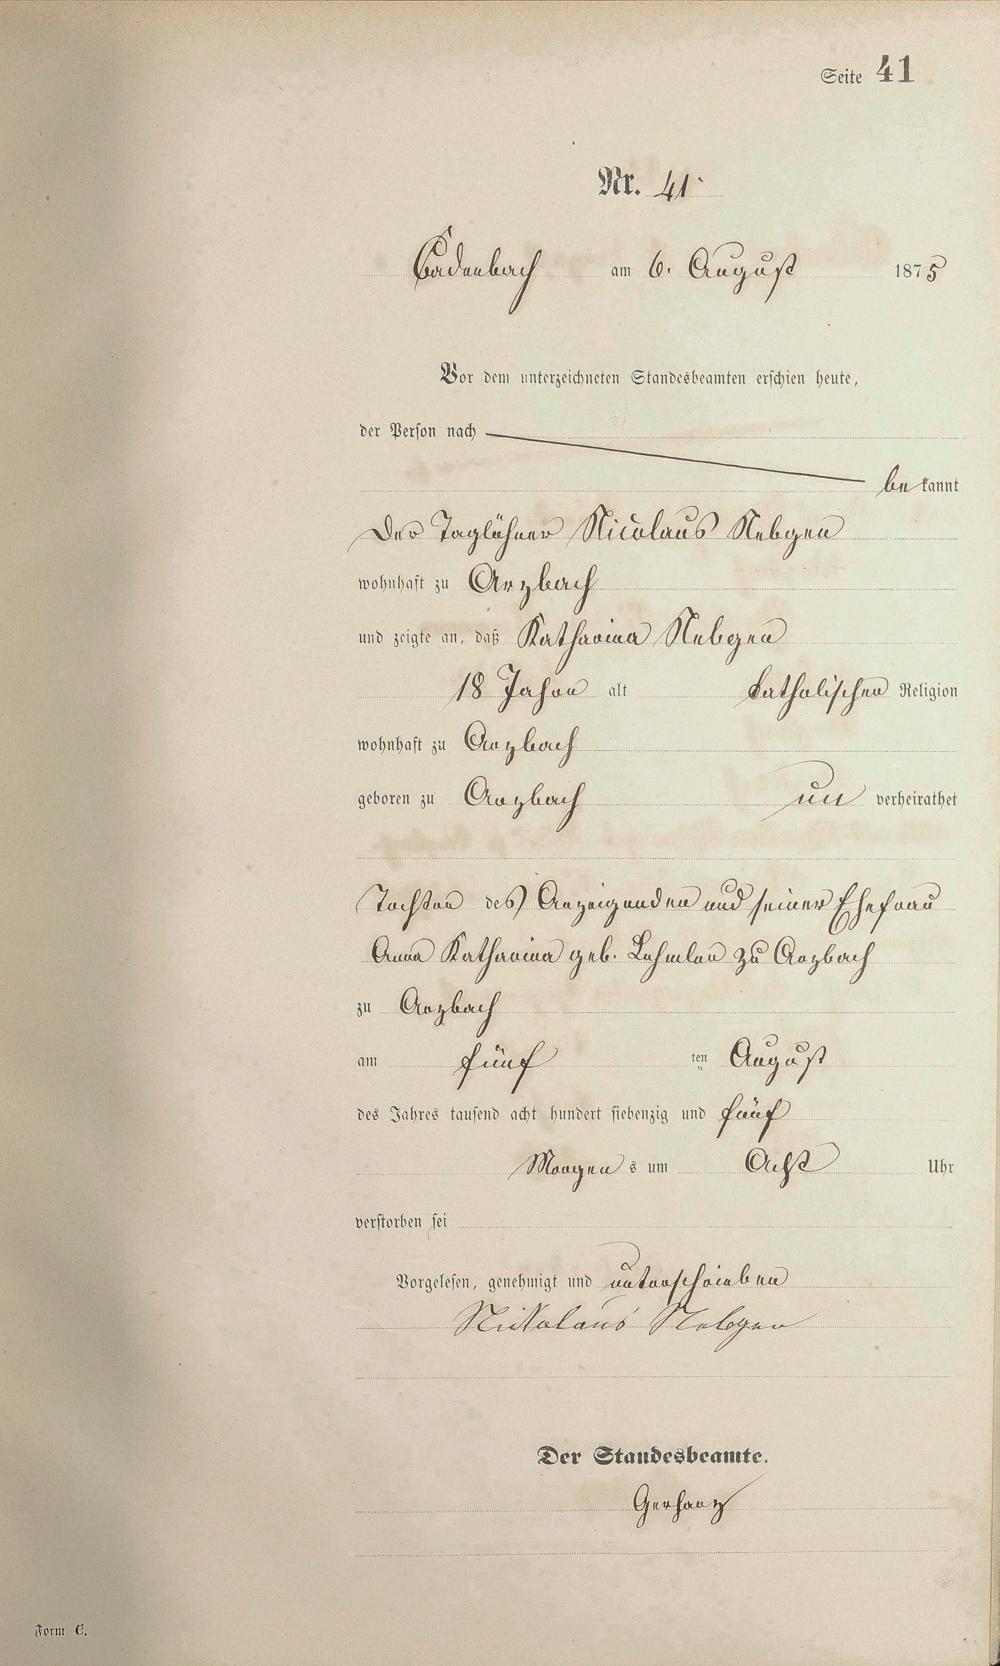 Seite 41
Nr. 41
Cadenbach am 6. August 1875
Vor dem unterzeichneten Standesbeamten erschien heute,
der Person nach
be kannt
der Taglöhner Nicolaus Nebgen
wohnhaft zu Arzbach
und zeigte an, daß Katharina Nebgen
18 Jahre alt katholischer Religion
wohnhaft zu Arzbach
geboren zu Arzbach un verheirathet
Tochter des Anzeigenden und seiner Ehefrau
Anna Katharina geb. zu Arzbach
zu Arzbach
am fünf ten August
des Jahres tausend acht hundert siebenzig und fünf
Morgen s um Acht Uhr
verstorben sei
Vorgelesen, genehmigt und unterschrieben
Nikolaus Nebgen
Der Standesbeamte.
Gerharz
Form C.